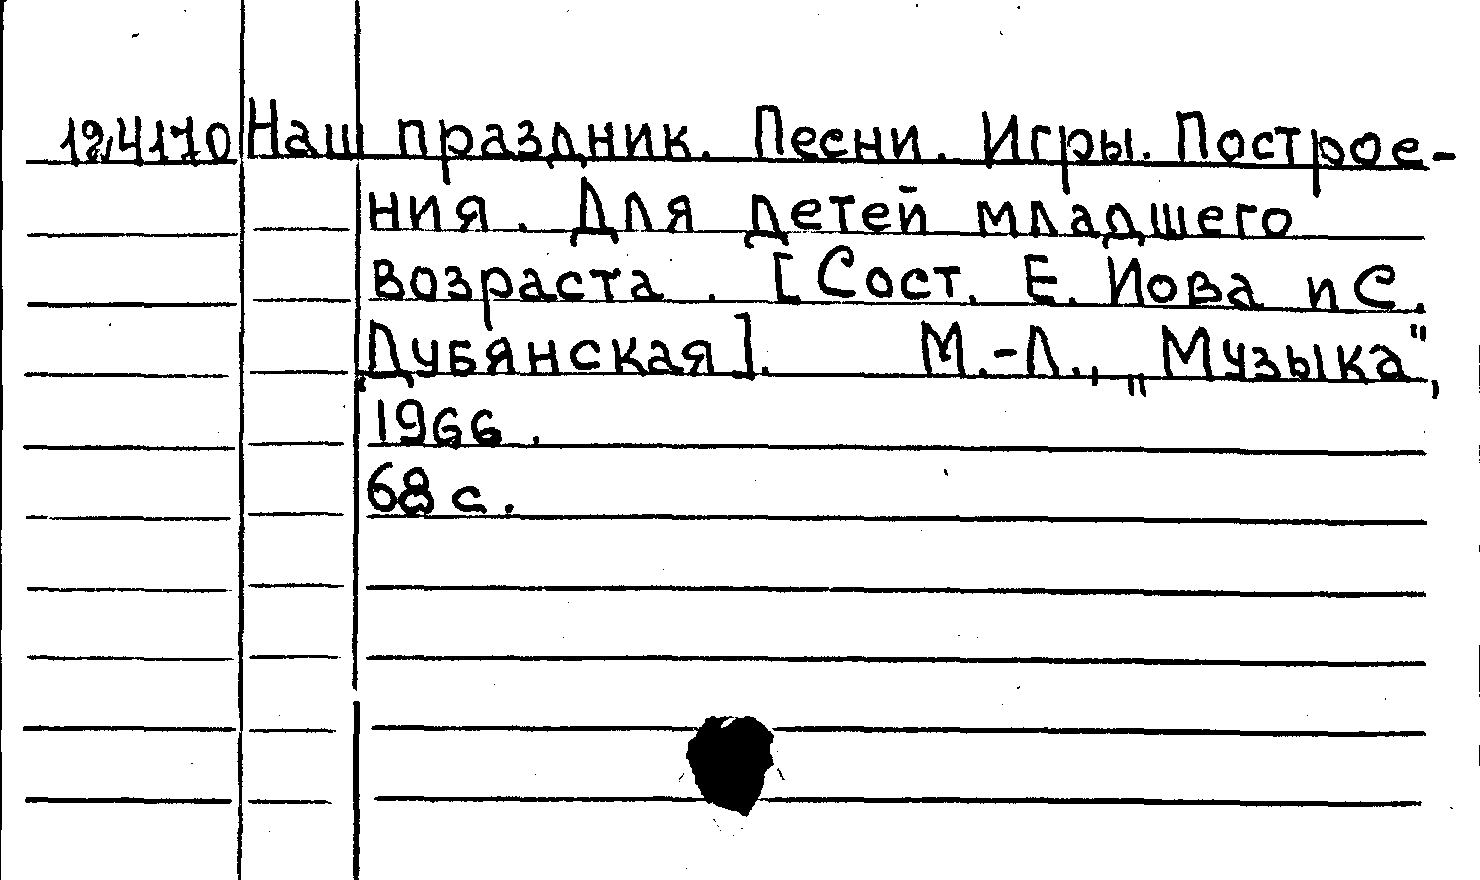 124170 Наш праздник. Песни. Игры. Построе-
ния. Для детей младшего
возраста. [Сост. Е. Иова и С.
Дубянская]. М.-Л., „Музыка",
1966.
68 с.